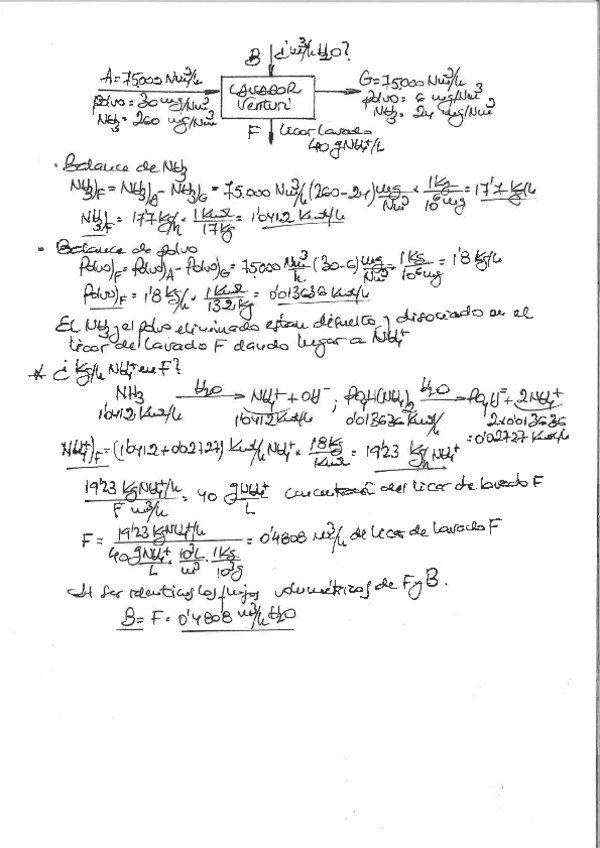 B ¿m³/h H2O?
A = 75.000 Nm³/h
Polvo = 30 mg/Nm³
NH3 = 260 mg/Nm³
LAVADOR
Venturi
G = 75.000 Nm³/h
Polvo = 6 mg/Nm³
NH3 = 24 mg/Nm³
F licor lavado
40 g NH4+/L
· Balance de NH3
NH3)F = NH3)A - NH3)G = 75.000 Nm³/h (260-24) mg/Nm³ * 1Kg/10⁶mg = 17'7 Kg/h
NH3)F = 17'7 Kg/h * 1Kmol/17Kg = 1'0412 Kmol/h
· Balance de polvo
Polvo)F = Polvo)A - Polvo)G = 75000 Nm³/h (30-6) mg/Nm³ * 1Kg/10⁶mg = 1'8 Kg/h
Polvo)F = 1'8 Kg/h * 1Kmol/132Kg = 0'013636 Kmol/h
El NH3 y el polvo eliminado estan disuelto y disociado en el
licor de lavado F dando lugar a NH4+
* ¿Kg/h NH4+ en F?
NH3 H2O→ NH4+ + OH- ; PO4H(NH4)2 H2O→ PO4H= + 2NH4+
1'0412 Kmol/h 1'0412 Kmol/h 0'013636 Kmol/h 2x0'013636
= 0'02727 Kmol/h
NH4+)F = (1'0412 + 0'02727) Kmol/h NH4+ * 18Kg/Kmol = 19'23 Kg/h NH4+
19'23 Kg NH4+/h / F m³/h = 40 g NH4+/L concentración del licor de lavado F
F = 19'23 Kg NH4+/h / 40 g NH4+/L · 10³L/m³ · 1Kg/10³g = 0'4808 m³/h de licor de lavado F
Al ser identicos los flujos volumétricos de F y B.
B = F = 0'4808 m³/h H2O